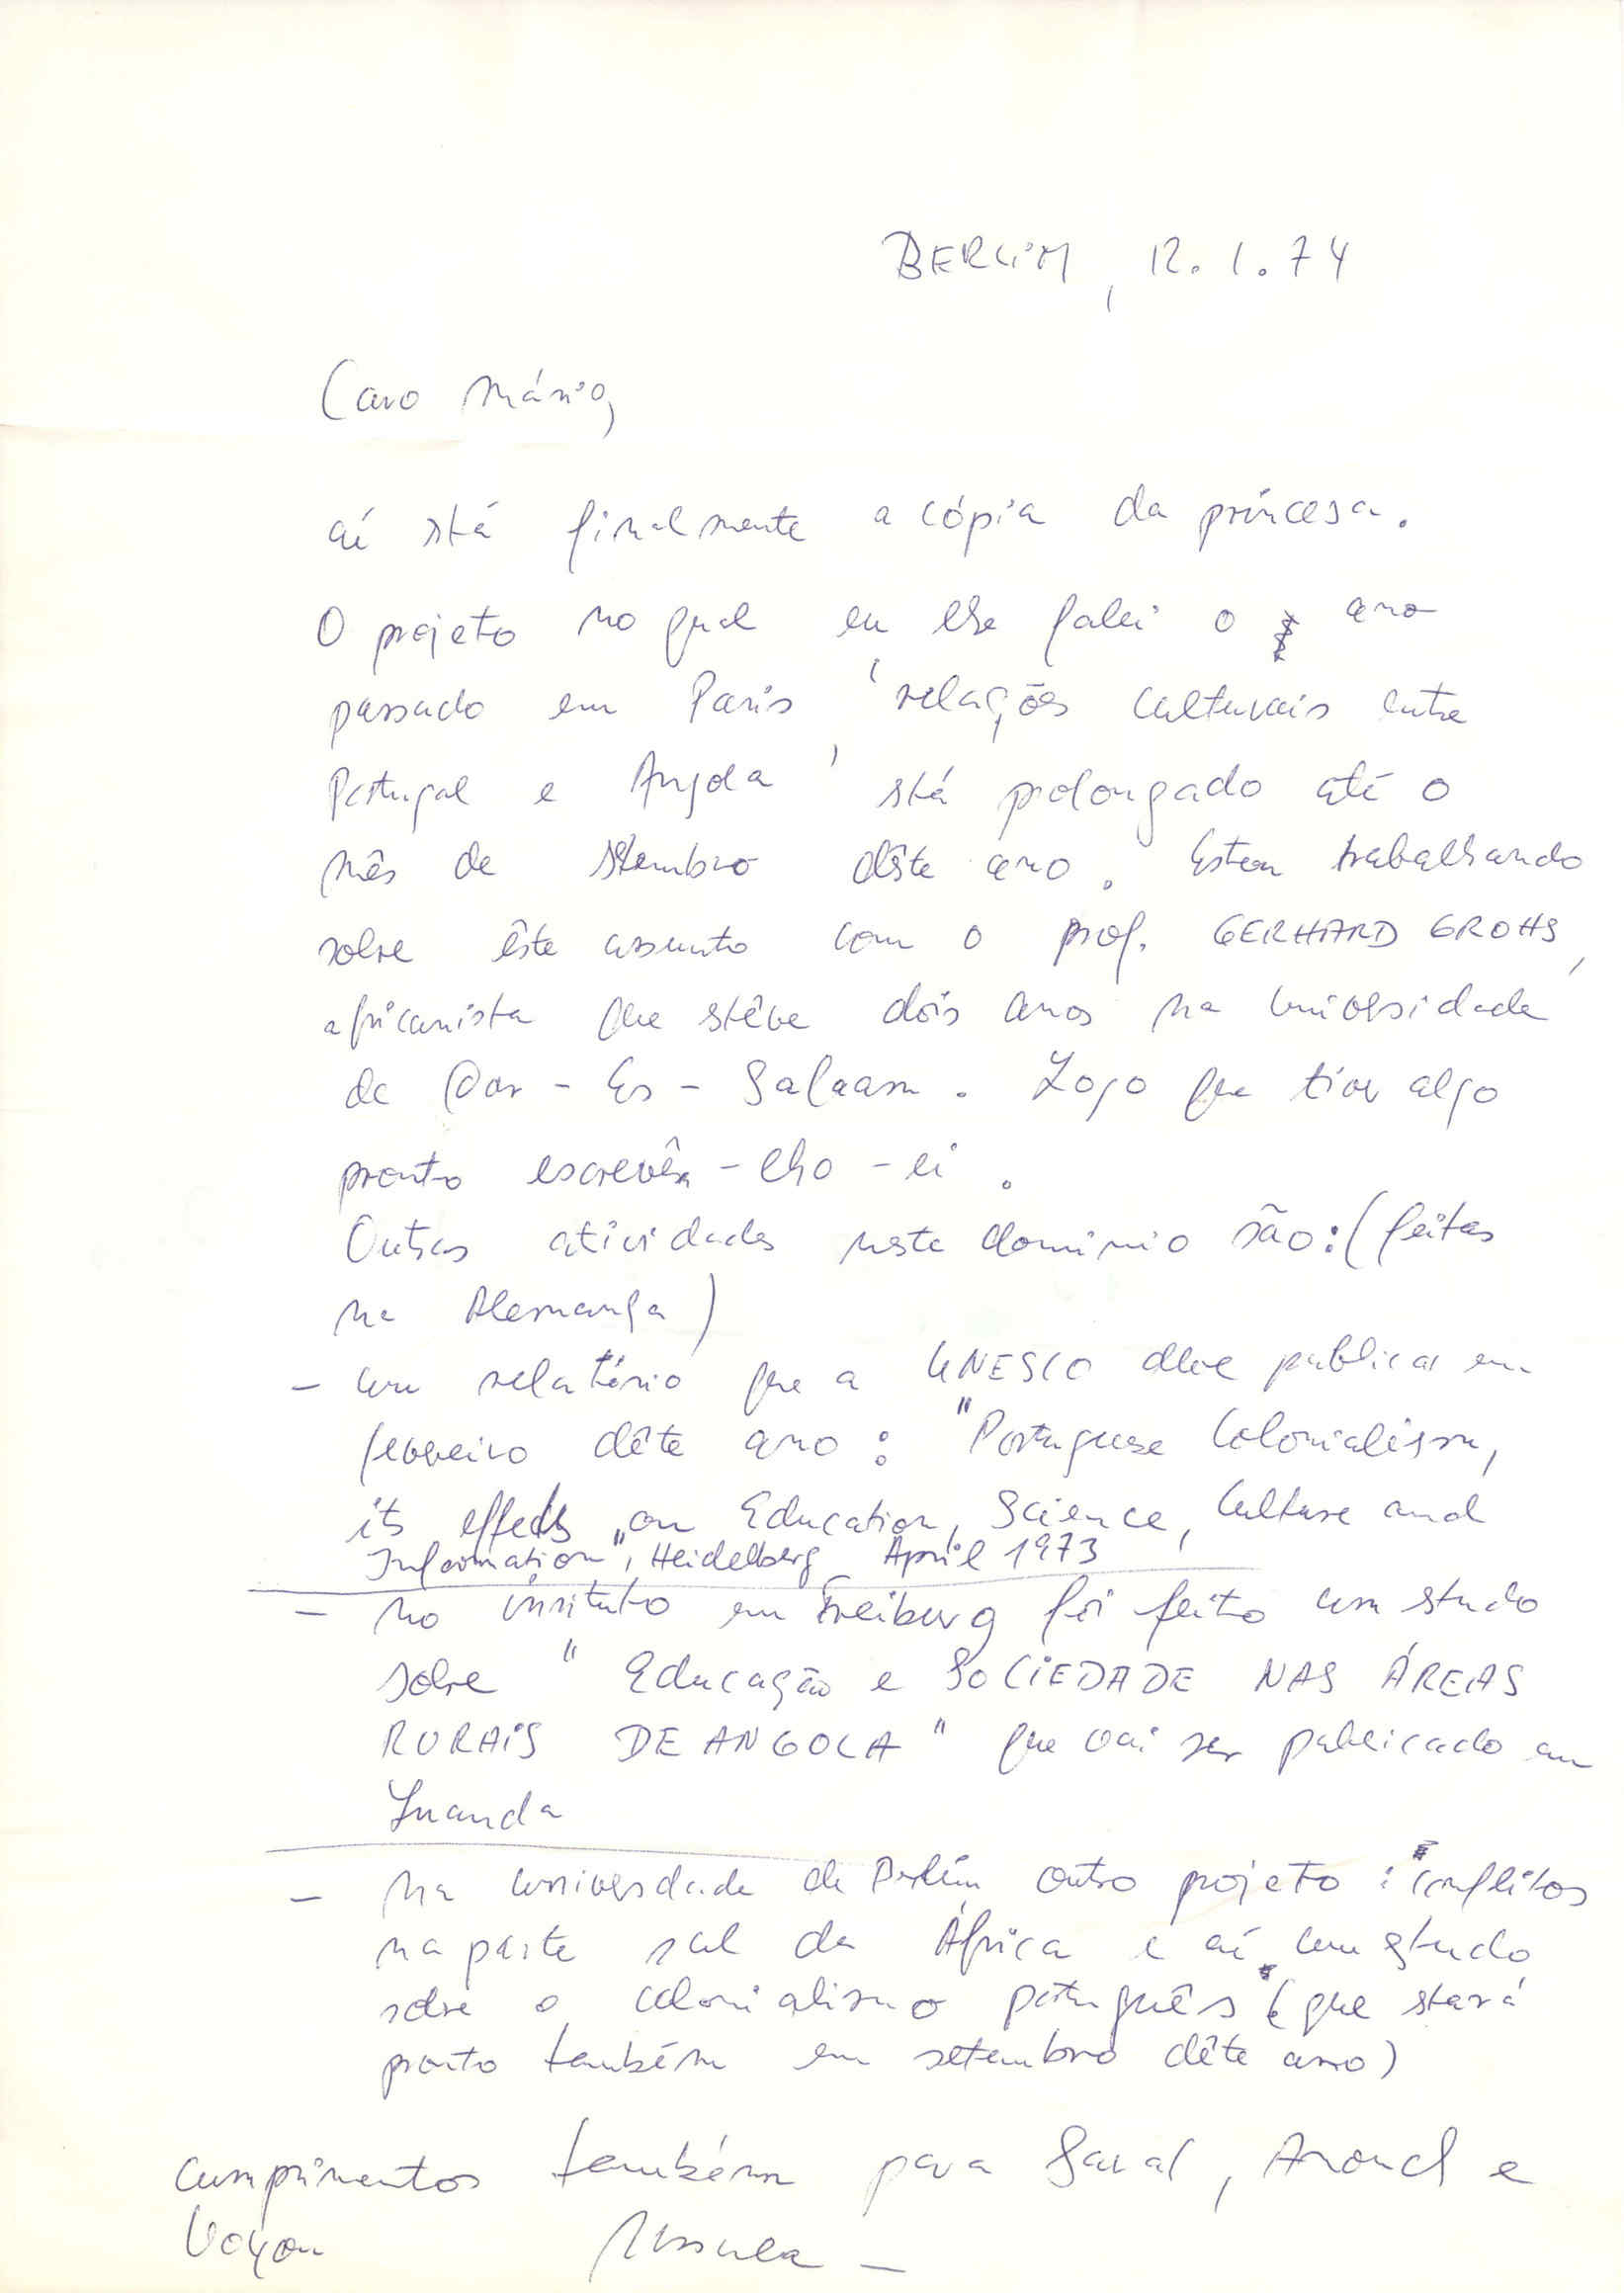 BERLIM, 12.1.74
Caro Mário,
aí stá finalmente a cópia da princesa.
O projeto no qual eu lhe falei o ano
passado em Paris 'relações culturais entre
Portugal e Angola' stá prolongado até o
mês de setembro dêste ano. Estou trabalhando
sobre êste assunto com o prof. GERHARD GROHS,
africanista que stêve dois anos na universidade
de Dar-Es-Salaam. Logo que tiver algo
pronto escrevêr-lho-ei.
Outras atividades neste dominio são: (feitas
na Alemanha)
- um relatório que a UNESCO deve publicar em
fevereiro dête ano: "Portuguese Colonialism,
its effects on Education, Science, Culture and
Information", Heidelberg April 1973
- no instituto em Freiburg foi feito um studo
sobre "Educação e SOCIEDADE NAS ÁREAS
RURAIS DE ANGOLA" que vai ser publicado em
Luanda
- na universdade de Berlim outro projeto: conflitos
na parte sul da África e aí um studo
sobre o colonialismo português (que stará
pronto também em setembro dête ano)
cumprimentos também para Saral, e